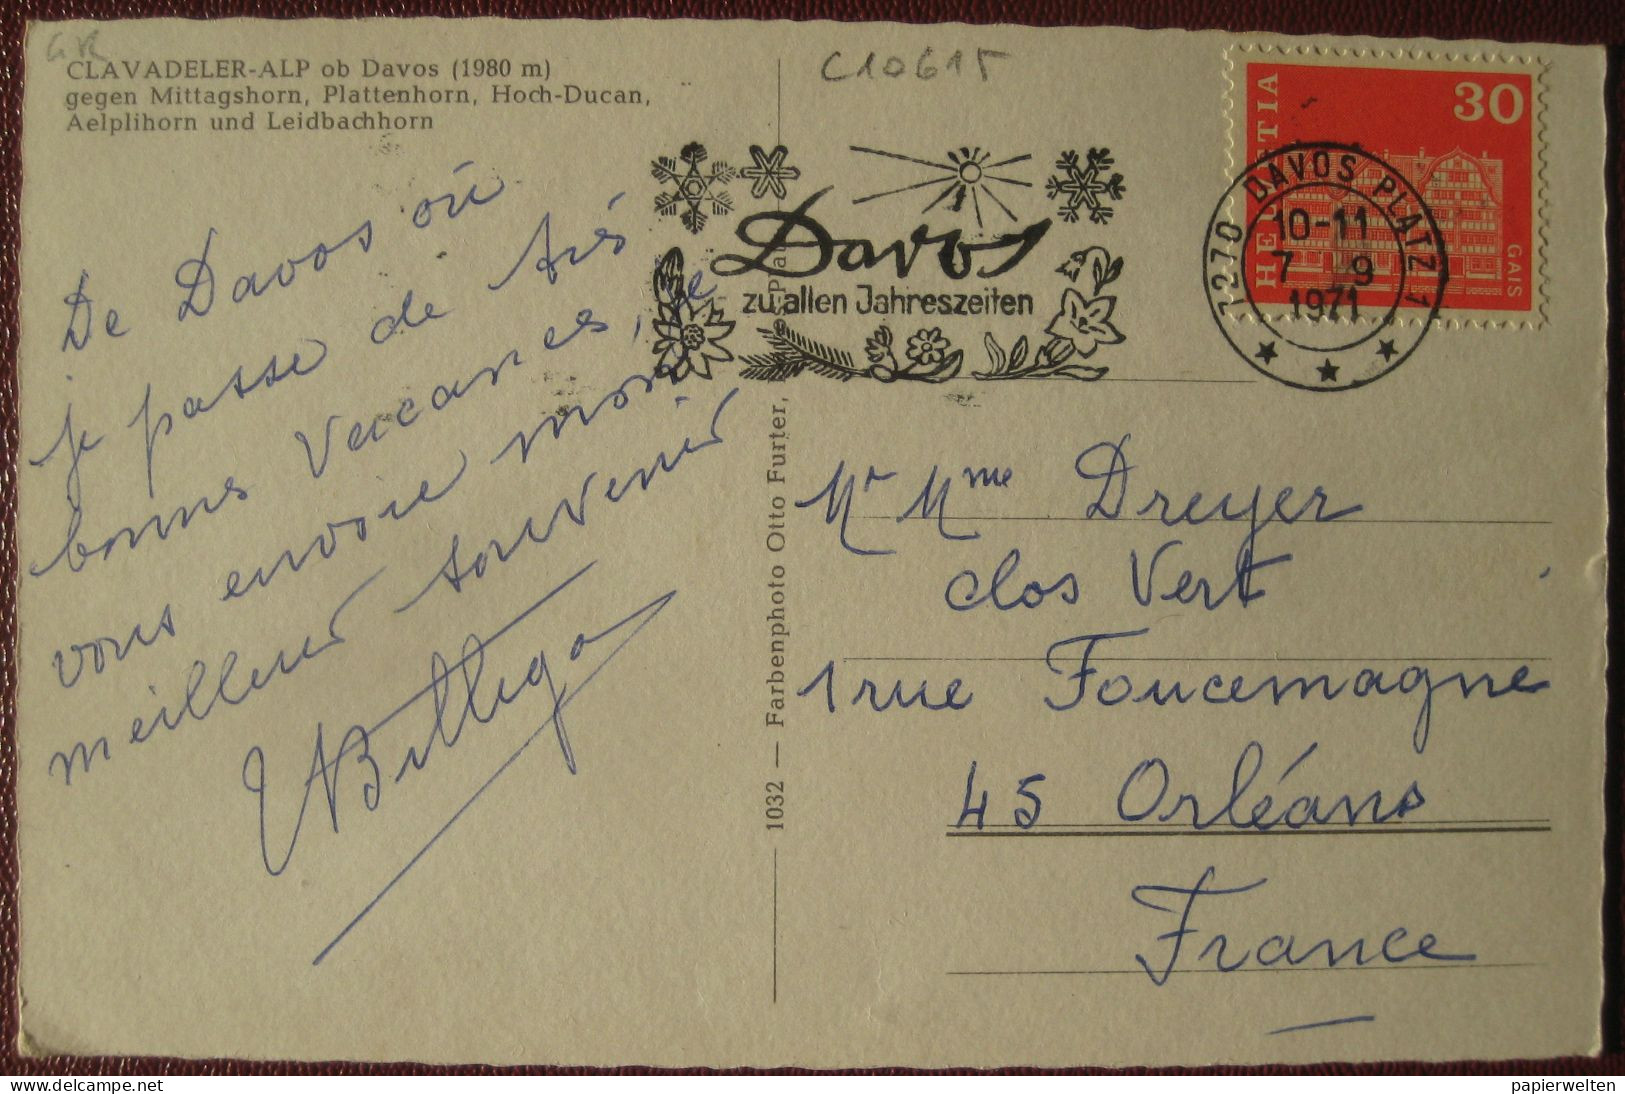 GR
CLAVADELER-ALP ob Davos (1980 m)
gegen Mittagshorn, Plattenhorn, Hoch-Ducan,
Aelplihorn und Leidbachhorn
C10615
De Davos où
je passe de très
bonnes vacances, je
vous envoie mon
meilleur souvenir
1032 — Farbenphoto Otto Furter,
Davos
zu allen Jahreszeiten
HELVETIA
30
GAIS
7270 DAVOS PLATZ 1
10-11
7 9
1971
Mr Mme Dreyer
clos Vert
1 rue Foucemagne
45 Orléans
France
papierwelten